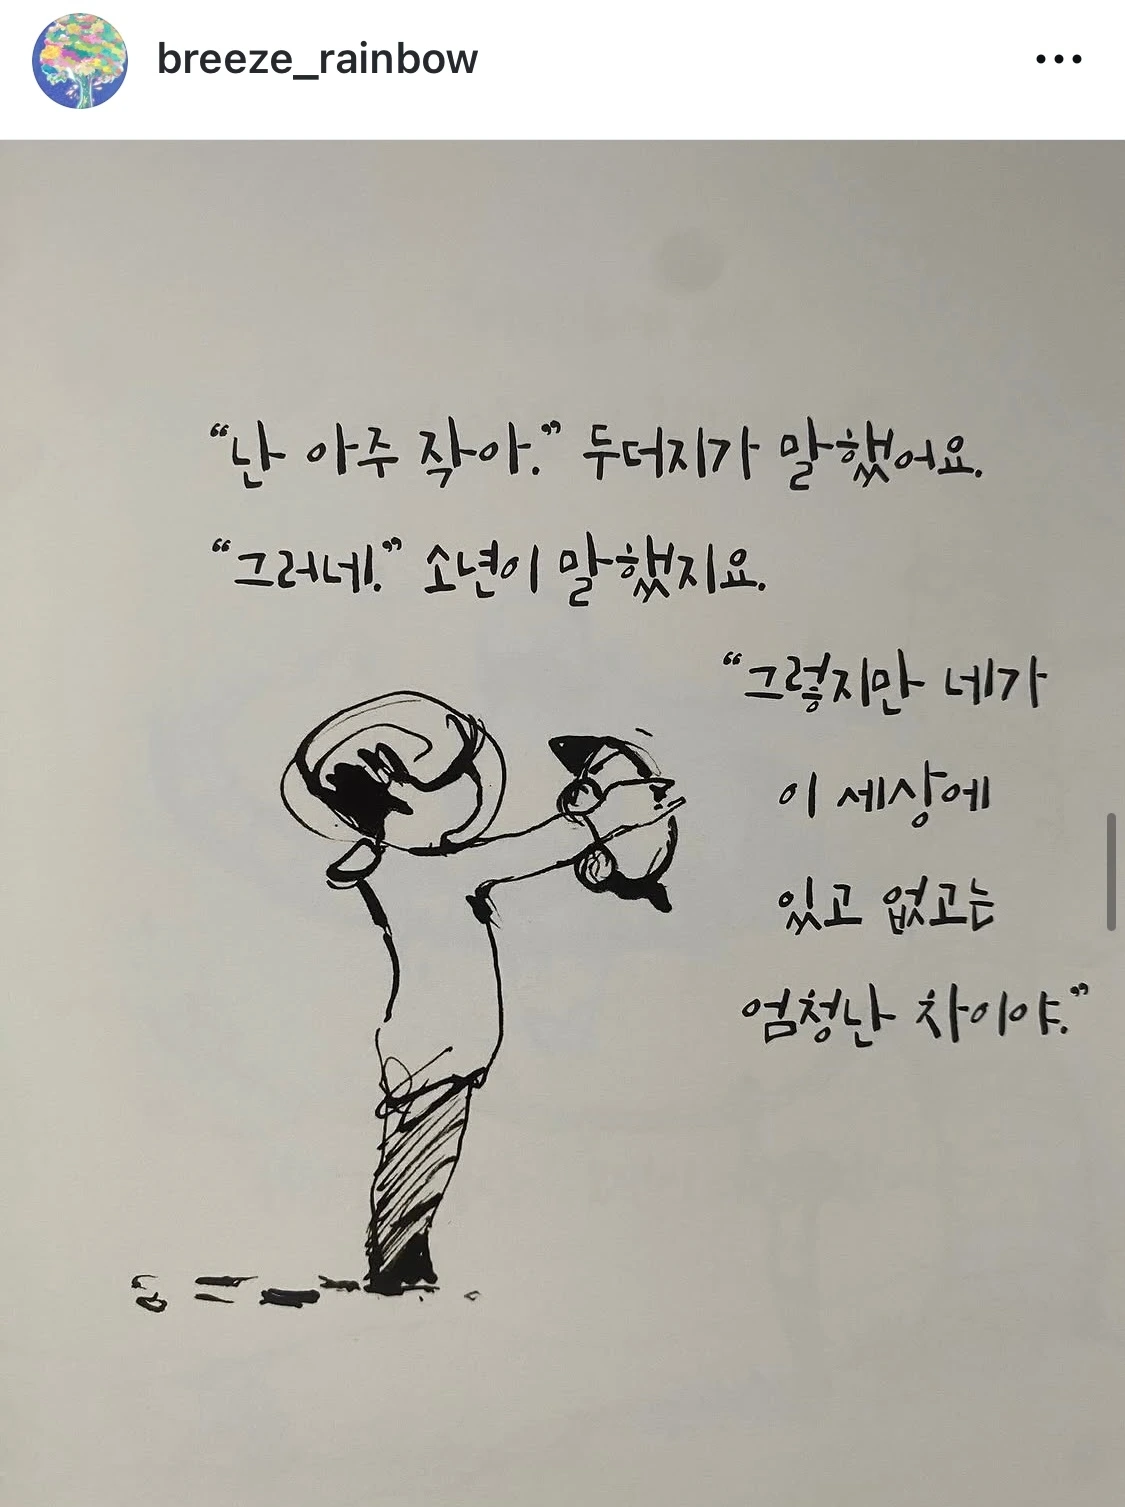 breeze_rainbow
“난 아주 작아.” 두더지가 말했어요.
“그러네.” 소년이 말했지요.
“그렇지만 네가
이 세상에
있고 없고는
엄청난 차이야.”